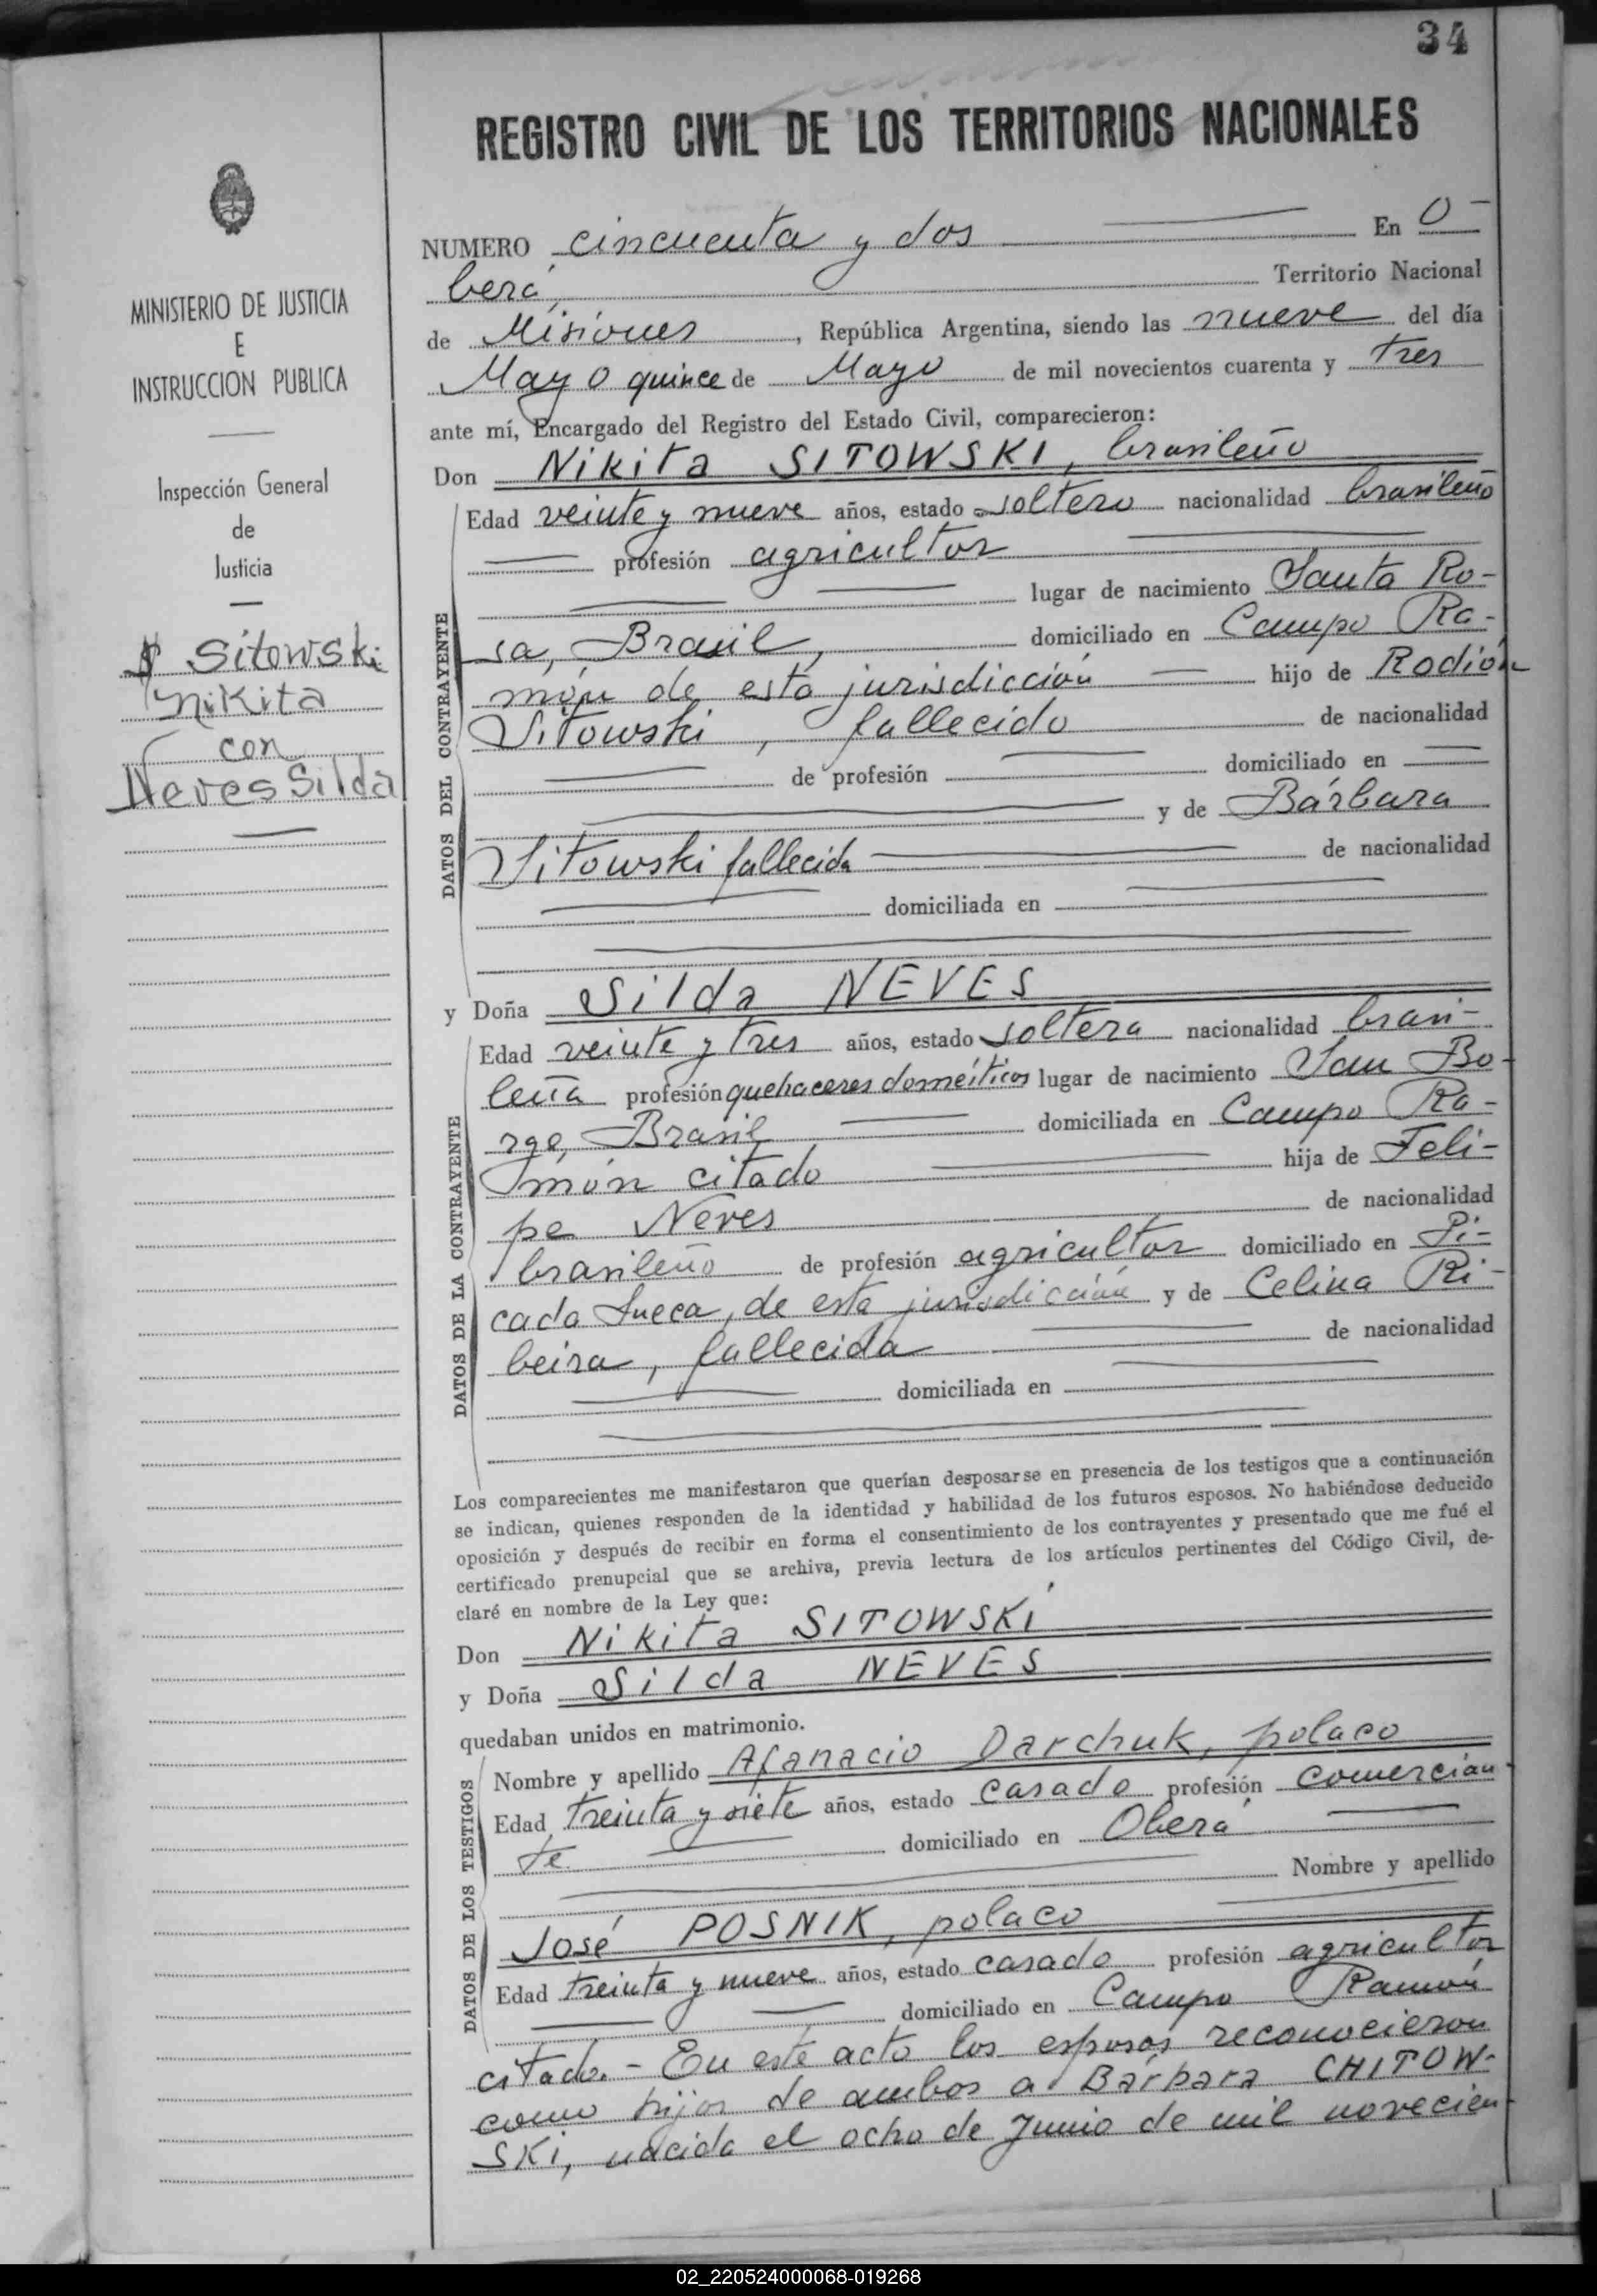 34
REGISTRO CIVIL DE LOS TERRITORIOS NACIONALES
MINISTERIO DE JUSTICIA
E
INSTRUCCION PUBLICA
Inspección General
de
Justicia
Sitowski
Nikita
con
Neves Silda
NUMERO cincuenta y dos En O-
berá, Territorio Nacional
de Misiones, República Argentina, siendo las nueve del día
Mayo quince de Mayo de mil novecientos cuarenta y tres
ante mí, Encargado del Registro del Estado Civil, comparecieron:
Don Nikita SITOWSKI, brasileño
DATOS DEL CONTRAYENTE
Edad veinte y nueve años, estado soltero nacionalidad brasileño
profesión agricultor
lugar de nacimiento Santa Ro-
sa, Brasil, domiciliado en Campo Ra-
món de esta jurisdicción hijo de Rodión
Sitowski, fallecido de nacionalidad
de profesión domiciliado en
y de Bárbara
Sitowski fallecida de nacionalidad
domiciliada en
y Doña Silda NEVES
DATOS DE LA CONTRAYENTE
Edad veinte y tres años, estado soltera nacionalidad brasi-
leña profesión quehaceres domésticos lugar de nacimiento San Bo-
rge, Brasil domiciliada en Campo Ra-
món citado hija de Feli-
pe Neves de nacionalidad
brasileño de profesión agricultor domiciliado en Pi-
cada Sueca, de esta jurisdicción y de Celina Ri-
beira, fallecida de nacionalidad
domiciliada en
Los comparecientes me manifestaron que querían desposarse en presencia de los testigos que a continuación
se indican, quienes responden de la identidad y habilidad de los futuros esposos. No habiéndose deducido
oposición y después de recibir en forma el consentimiento de los contrayentes y presentado que me fué el
certificado prenupcial que se archiva, previa lectura de los artículos pertinentes del Código Civil, de-
claré en nombre de la Ley que:
Don Nikita SITOWSKI
y Doña Silda NEVES
quedaban unidos en matrimonio.
DATOS DE LOS TESTIGOS
Nombre y apellido Afanacio Darchuk, polaco
Edad treinta y siete años, estado casado profesión comercian-
te. domiciliado en Oberá
Nombre y apellido
José POSNIK, polaco
Edad treinta y nueve años, estado casado profesión agricultor
domiciliado en Campo Ramón
citado.- En este acto los esposos reconocieron
como hijos de ambos a Bárbara CHITOW-
SKI, nacida el ocho de Junio de mil novecien-
02_220524000068-019268